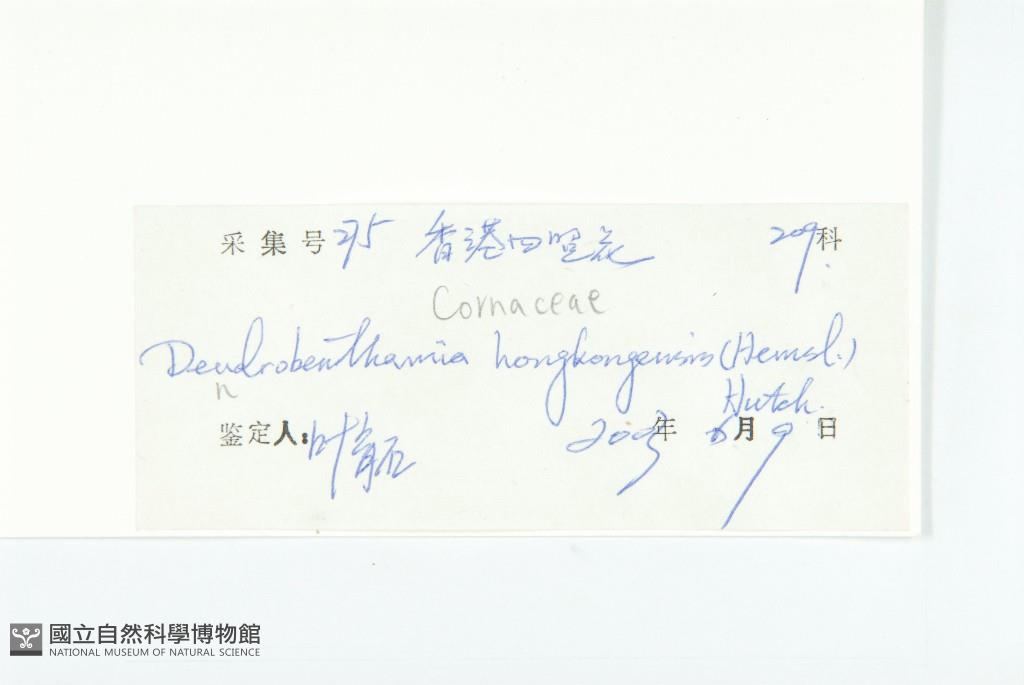 采集号 275 香港四照花 209科
Cornaceae
Dendrobenthamia hongkongensis (Hemsl.)
n
Hutch.
鉴定人: 叶育石 2003年 6月 9日
國立自然科學博物館
NATIONAL MUSEUM OF NATURAL SCIENCE